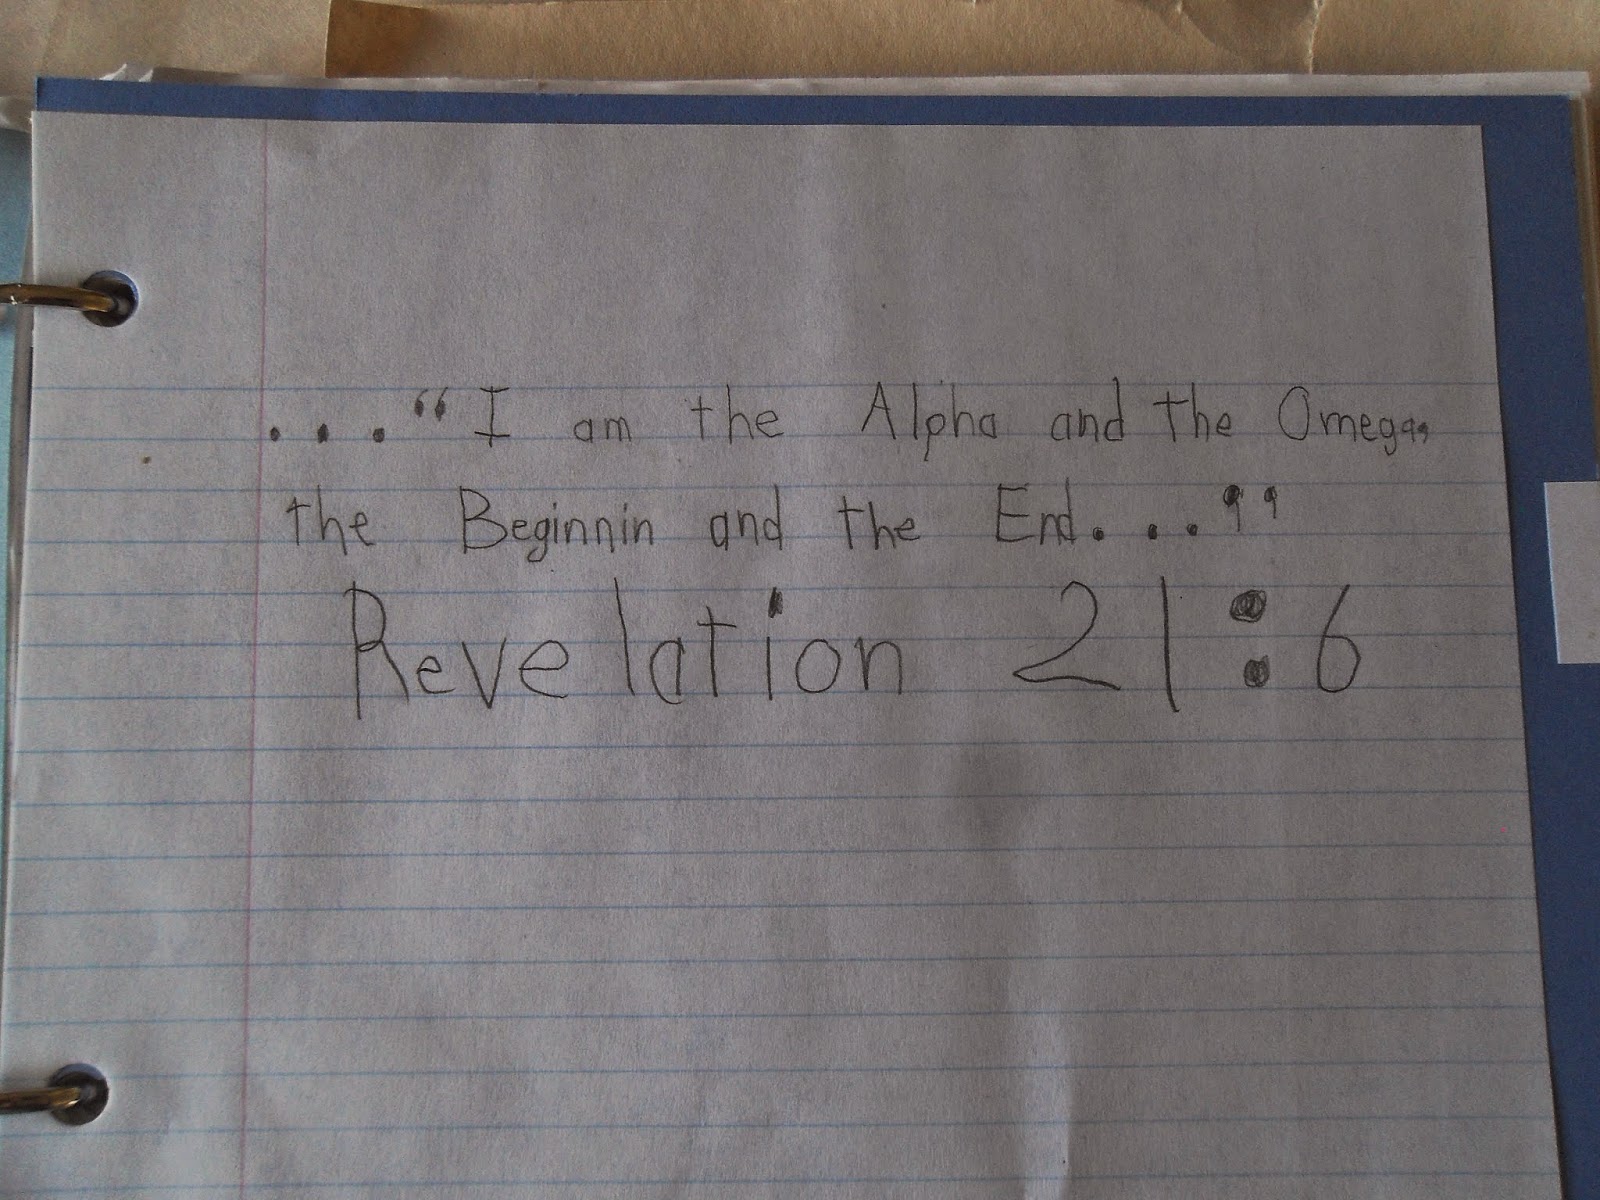 ..."I am the Alpha and the Omega,
the Beginnin and the End..."
Revelation 21:6